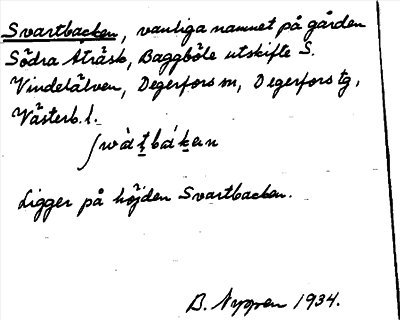 Svartbacken, vanliga namnet på gården
Södra Åträsk, Baggböle utskifte S.
Vindelälven, Degerfors m, Degerfors tg,
Västerb. l.
Ligger på höjden Svartbacken.
B. 1934.